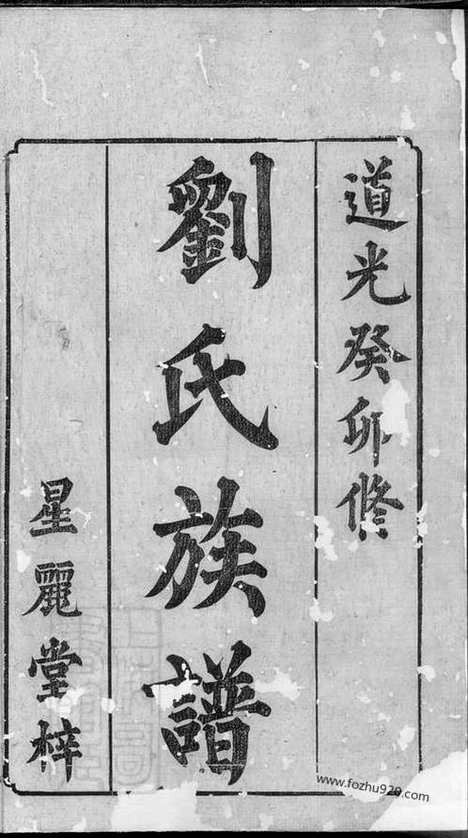 道光癸卯修
劉氏族譜
星麗堂梓
www.fozhu920.com